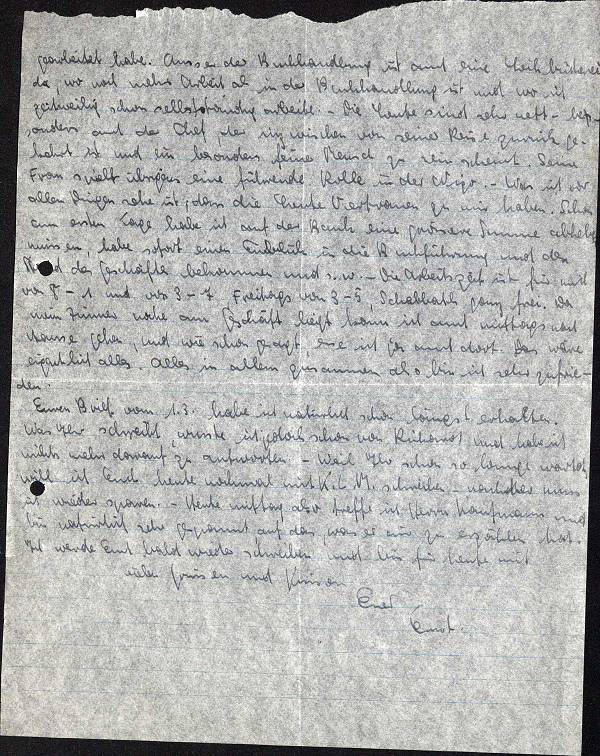 gearbeitet habe. Ausser der Buchhandlung ist auch eine Leihbücherei
da, wo noch mehr Arbeit als in der Buchhandlung ist und wo ich
zeitweilig schon selbstständig arbeite. - Die Leute sind sehr nett - be-
sonders auch der Chef, der inzwischen von seiner Reise zurück ge-
kehrt ist und ein besonders feiner Mensch zu sein scheint. Seine
Frau spielt übrigens eine führende Rolle in der Wizo. - Was ich vor
allen Dingen sehe ist, dass die Leute Vertrauen zu mir haben. Schon
am ersten Tage habe ich auf der Bank eine grössere Summe
müssen, habe sofort einen Einblick in die Buchführung und den
des Geschäftes bekommen und s.w. - Die Arbeitszeit ist für mich
von 8 - 1 und von 3 - 7, Freitags von 3 - 5, Schabbath ganz frei. Da
mein Zimmer nahe am Geschäft liegt kann ich auch mittags nach
Hause gehen, und wie schon gesagt esse ich ja auch dort. Das wäre
eigentlich alles. Alles in allem zusammen also bin ich sehr zufrie-
den.
Euren Brief vom 1.3. habe ich natürlich schon längst erhalten.
Was Ihr schreibt wusste ich jedoch schon von Richard und habe ich
nichts mehr darauf zu antworten. - Weil Ihr schon so lange wartet
will ich Euch heute nochmal mit schreiben - nachher muss
ich wieder sparen. - Heute mittag also treffe ich Herrn Kaufmann und
bin natürlich sehr gespannt auf das, was er mir zu erzählen hat.
Ich werde Euch bald wieder schreiben und bin für heute mit
vielen Grüssen und Küssen
Euer
Ernst.